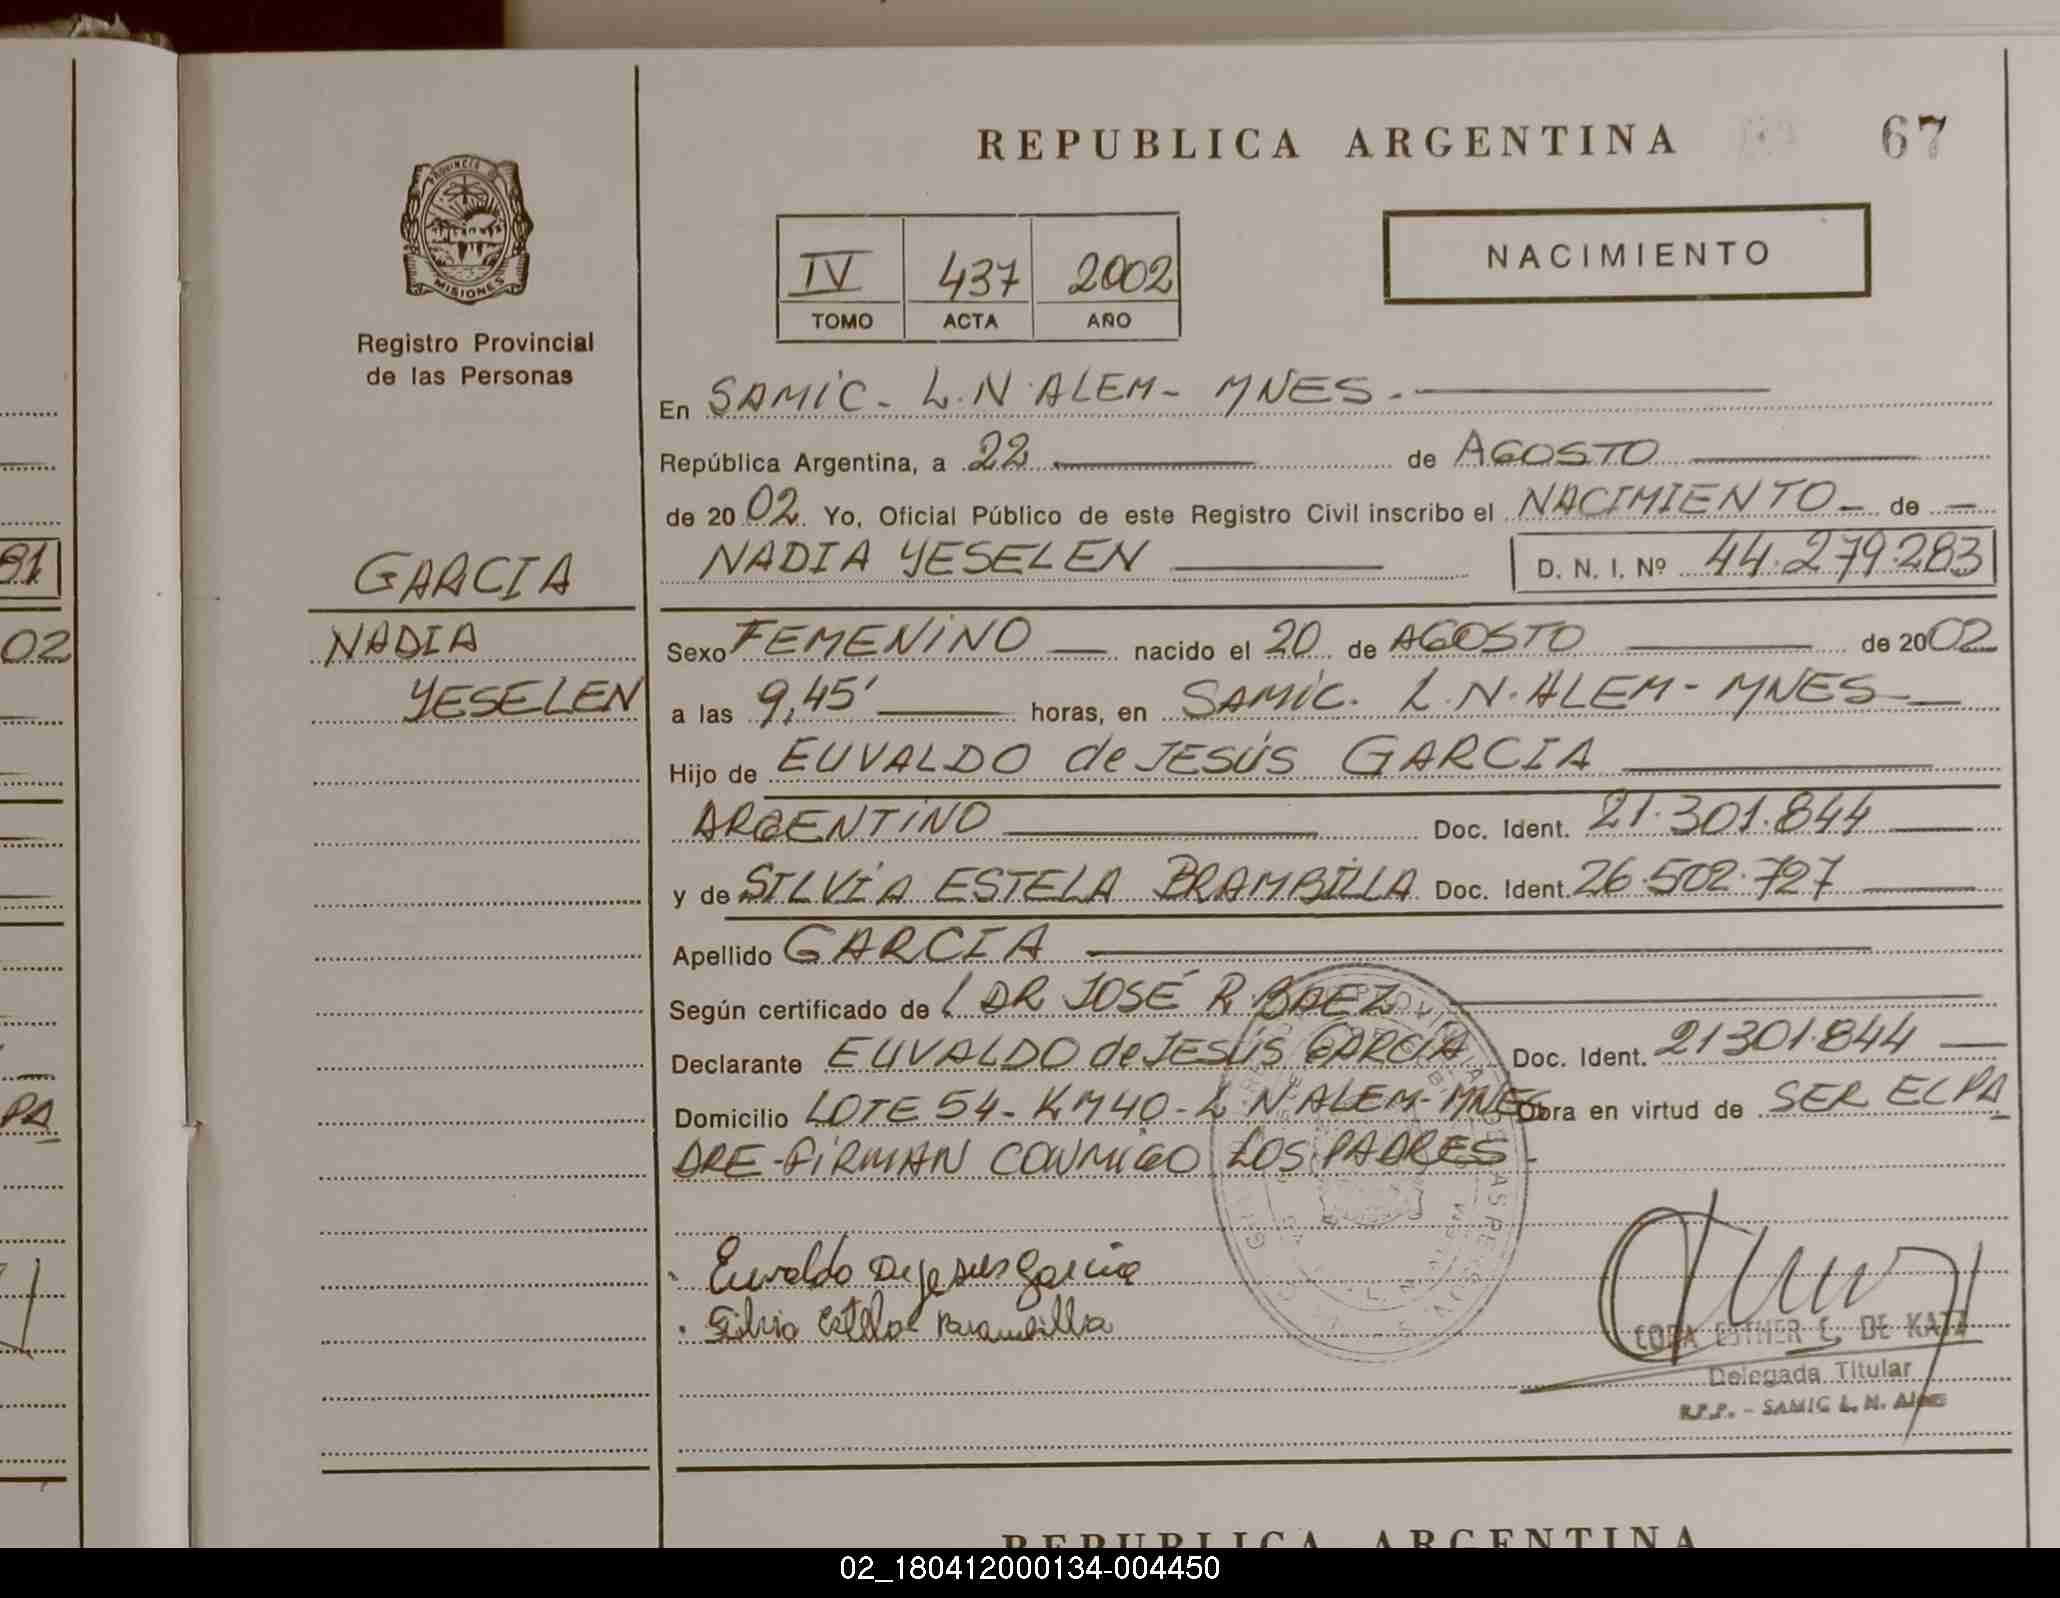 REPUBLICA ARGENTINA 67
PROVINCIA DE
MISIONES
Registro Provincial
de las Personas
NACIMIENTO
IV 437 2002
TOMO ACTA AÑO
En SAMIC - L.N. ALEM - MNES -
República Argentina, a 22 de AGOSTO
de 2002. Yo, Oficial Público de este Registro Civil inscribo el NACIMIENTO - de -
NADIA YESELEN D. N. I. Nº 44.279.283
GARCIA
NADIA
YESELEN
Sexo FEMENINO nacido el 20 de AGOSTO de 2002
a las 9,45' horas, en SAMIC. L.N. ALEM - MNES
Hijo de EUVALDO de JESÚS GARCIA
ARGENTINO Doc. Ident. 21.301.844
y de SILVIA ESTELA BRAMBILLA Doc. Ident. 26.502.727
Apellido GARCIA
Según certificado de DR JOSÉ R. BAEZ
Declarante EUVALDO de JESÚS GARCIA Doc. Ident. 21301.844
Domicilio LOTE 54 - KM 40 - L N ALEM - MNES Obra en virtud de SER EL PA
DRE - FIRMAN CONMIGO LOS PADRES -
Euvaldo De jesus Garcia
Silvia Estela Brambilla
ESTHER C. DE KATZ
Delegada Titular
R.P.P. - SAMIC L. N. Alem
REPUBLICA ARGENTINA
91
02
PA
02_180412000134-004450